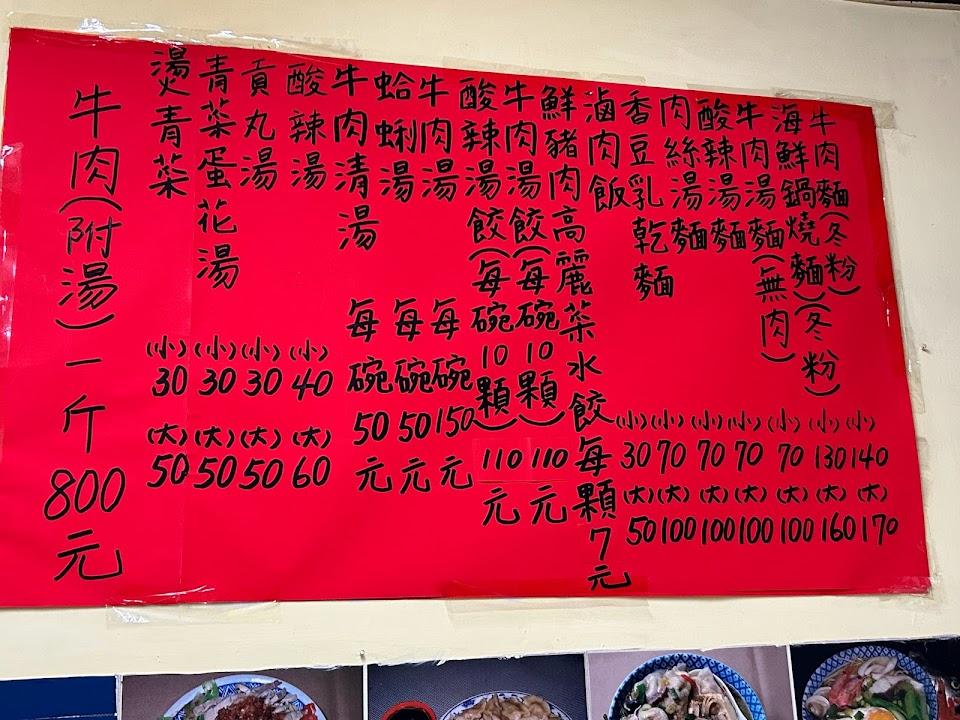 牛肉麵(冬粉) (小)140 (大)170
海鮮鍋燒麵(冬粉) (小)130 (大)160
牛肉湯麵(無肉) (小)70 (大)100
酸辣湯麵 (小)70 (大)100
肉絲湯麵 (小)70 (大)100
香豆乳乾麵 (小)70 (大)100
滷肉飯 (小)30 (大)50
鮮豬肉高麗菜水餃每顆7元
牛肉湯餃(每碗10顆) 110元
酸辣湯餃(每碗10顆) 110元
牛肉湯 每碗150元
蛤蜊湯 每碗50元
牛肉清湯 每碗50元
酸辣湯 (小)40 (大)60
貢丸湯 (小)30 (大)50
青菜蛋花湯 (小)30 (大)50
燙青菜 (小)30 (大)50
牛肉(附湯)一斤800元